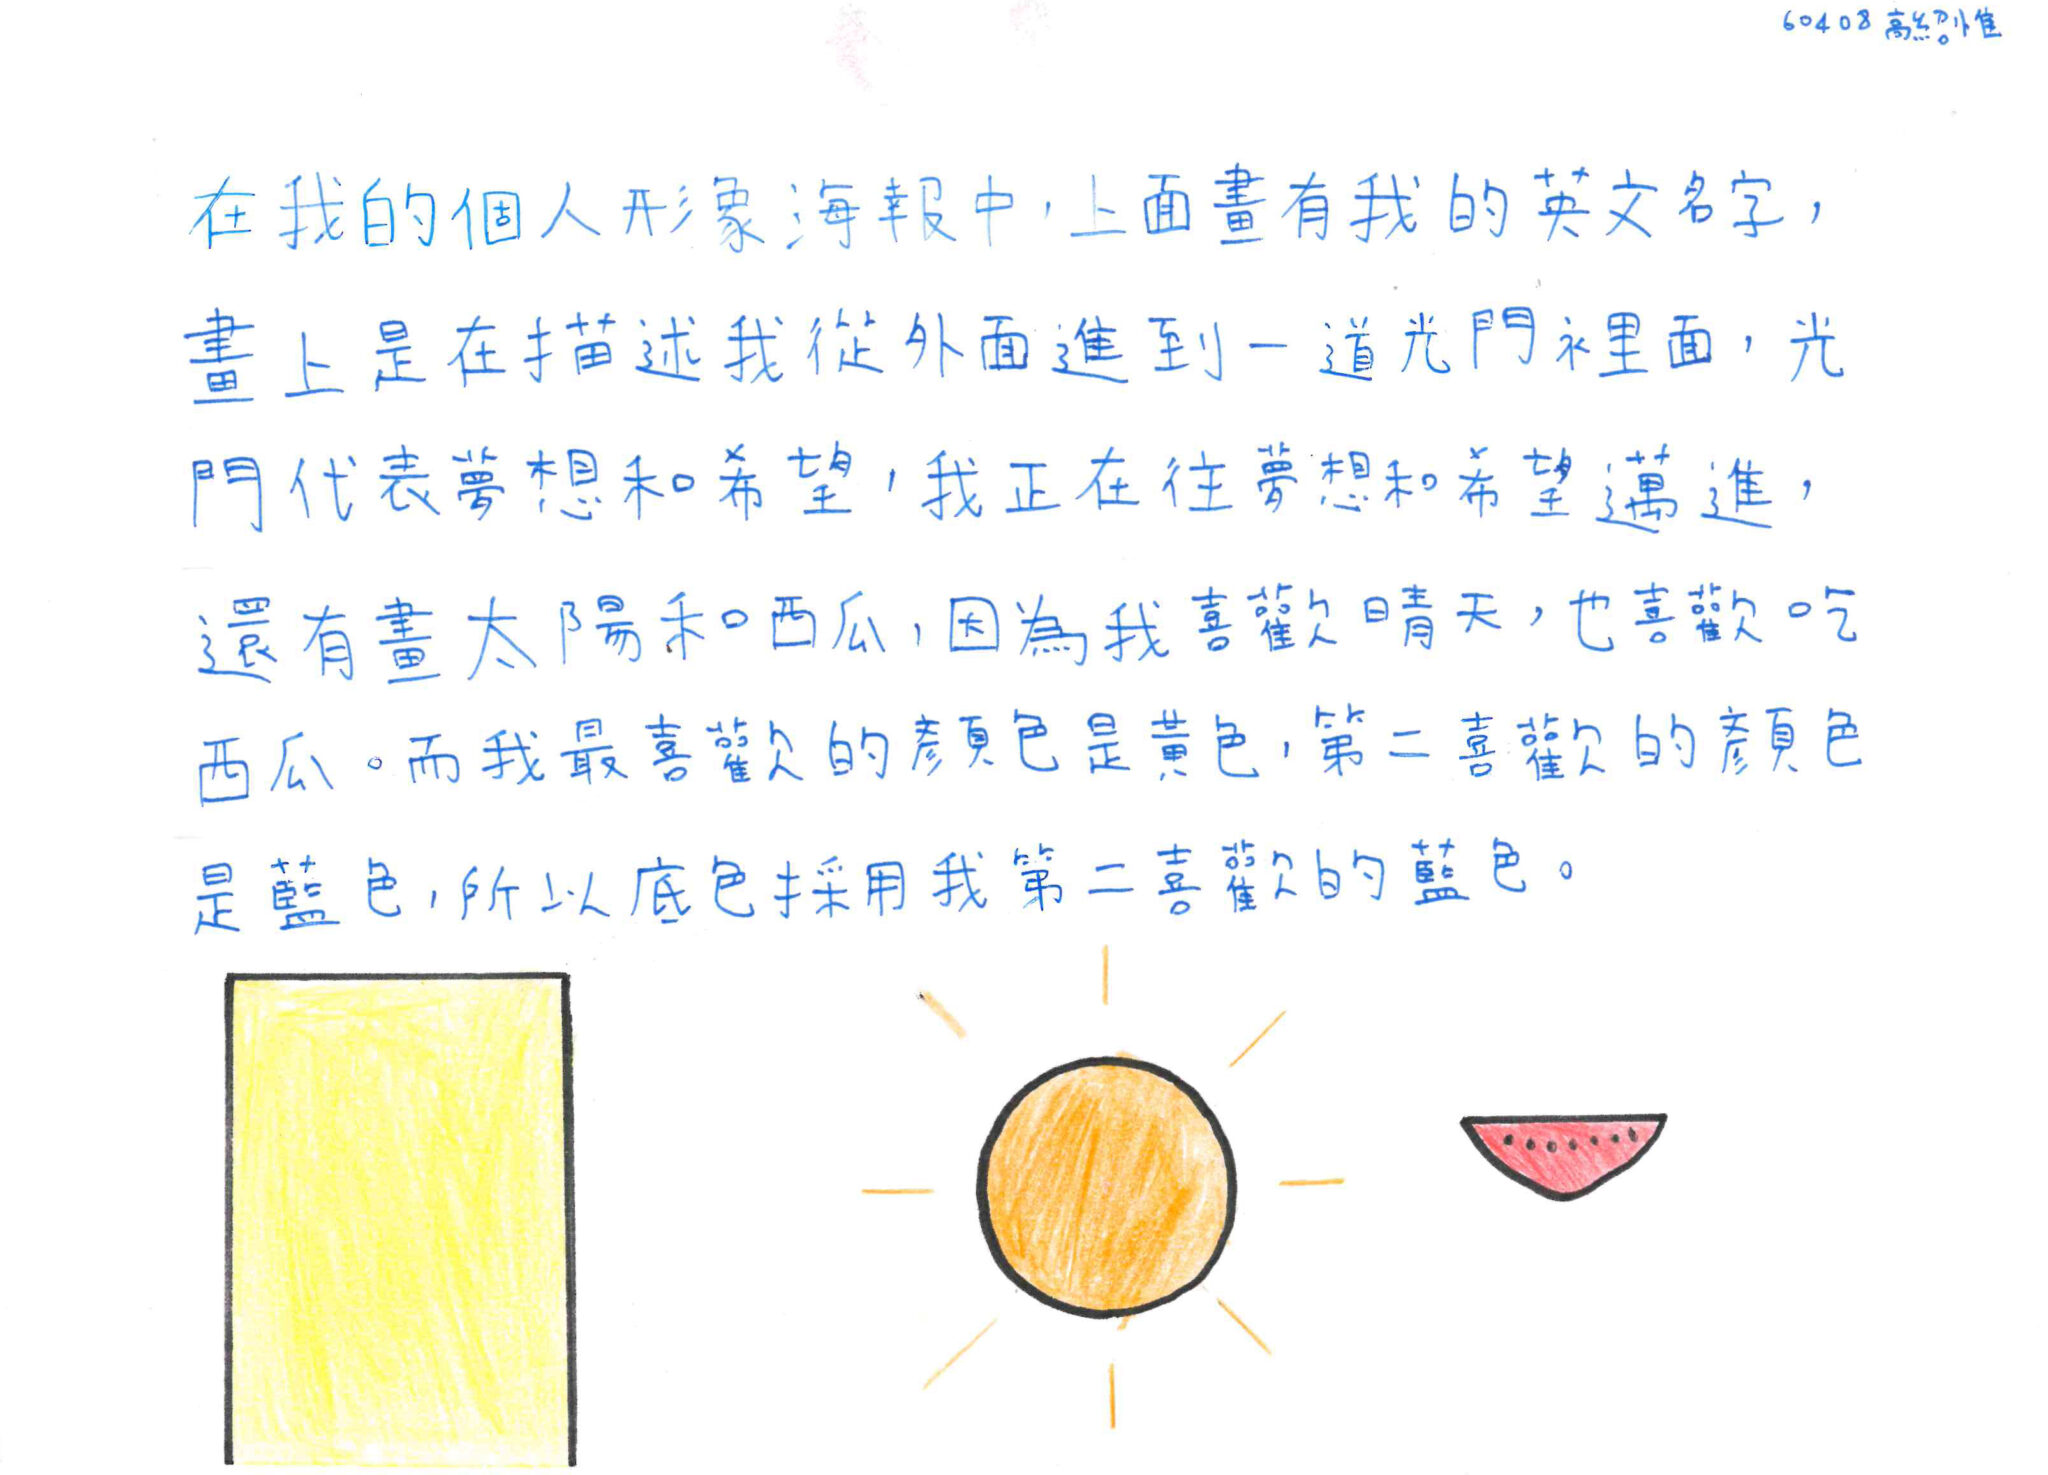 60408 高紹惟
在我的個人形象海報中，上面畫有我的英文名字，
畫上是在描述我從外面進到一道光門裡面，光
門代表夢想和希望，我正在往夢想和希望邁進，
還有畫太陽和西瓜，因為我喜歡晴天，也喜歡吃
西瓜。而我最喜歡的顏色是黃色，第二喜歡的顏色
是藍色，所以底色採用我第二喜歡的藍色。